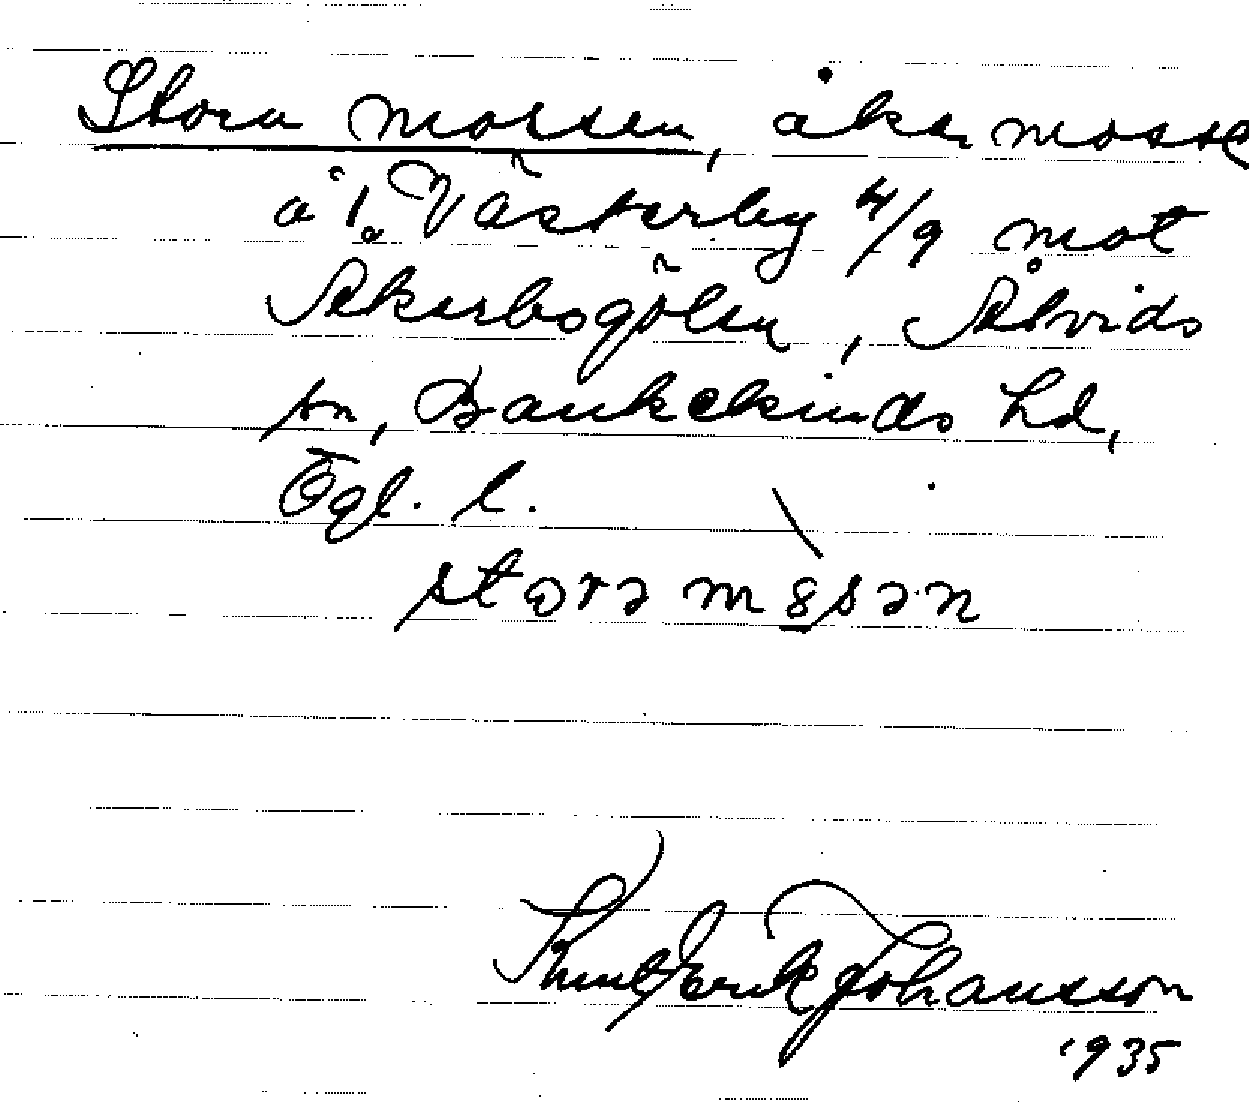 Stora mossen, åker mosse
å 1. Västerby 4/9 mot
Åkerbogölen, Åtvids
sn, Bankekinds hd,
Ögl. l.
Knut Erik Johansson
1935